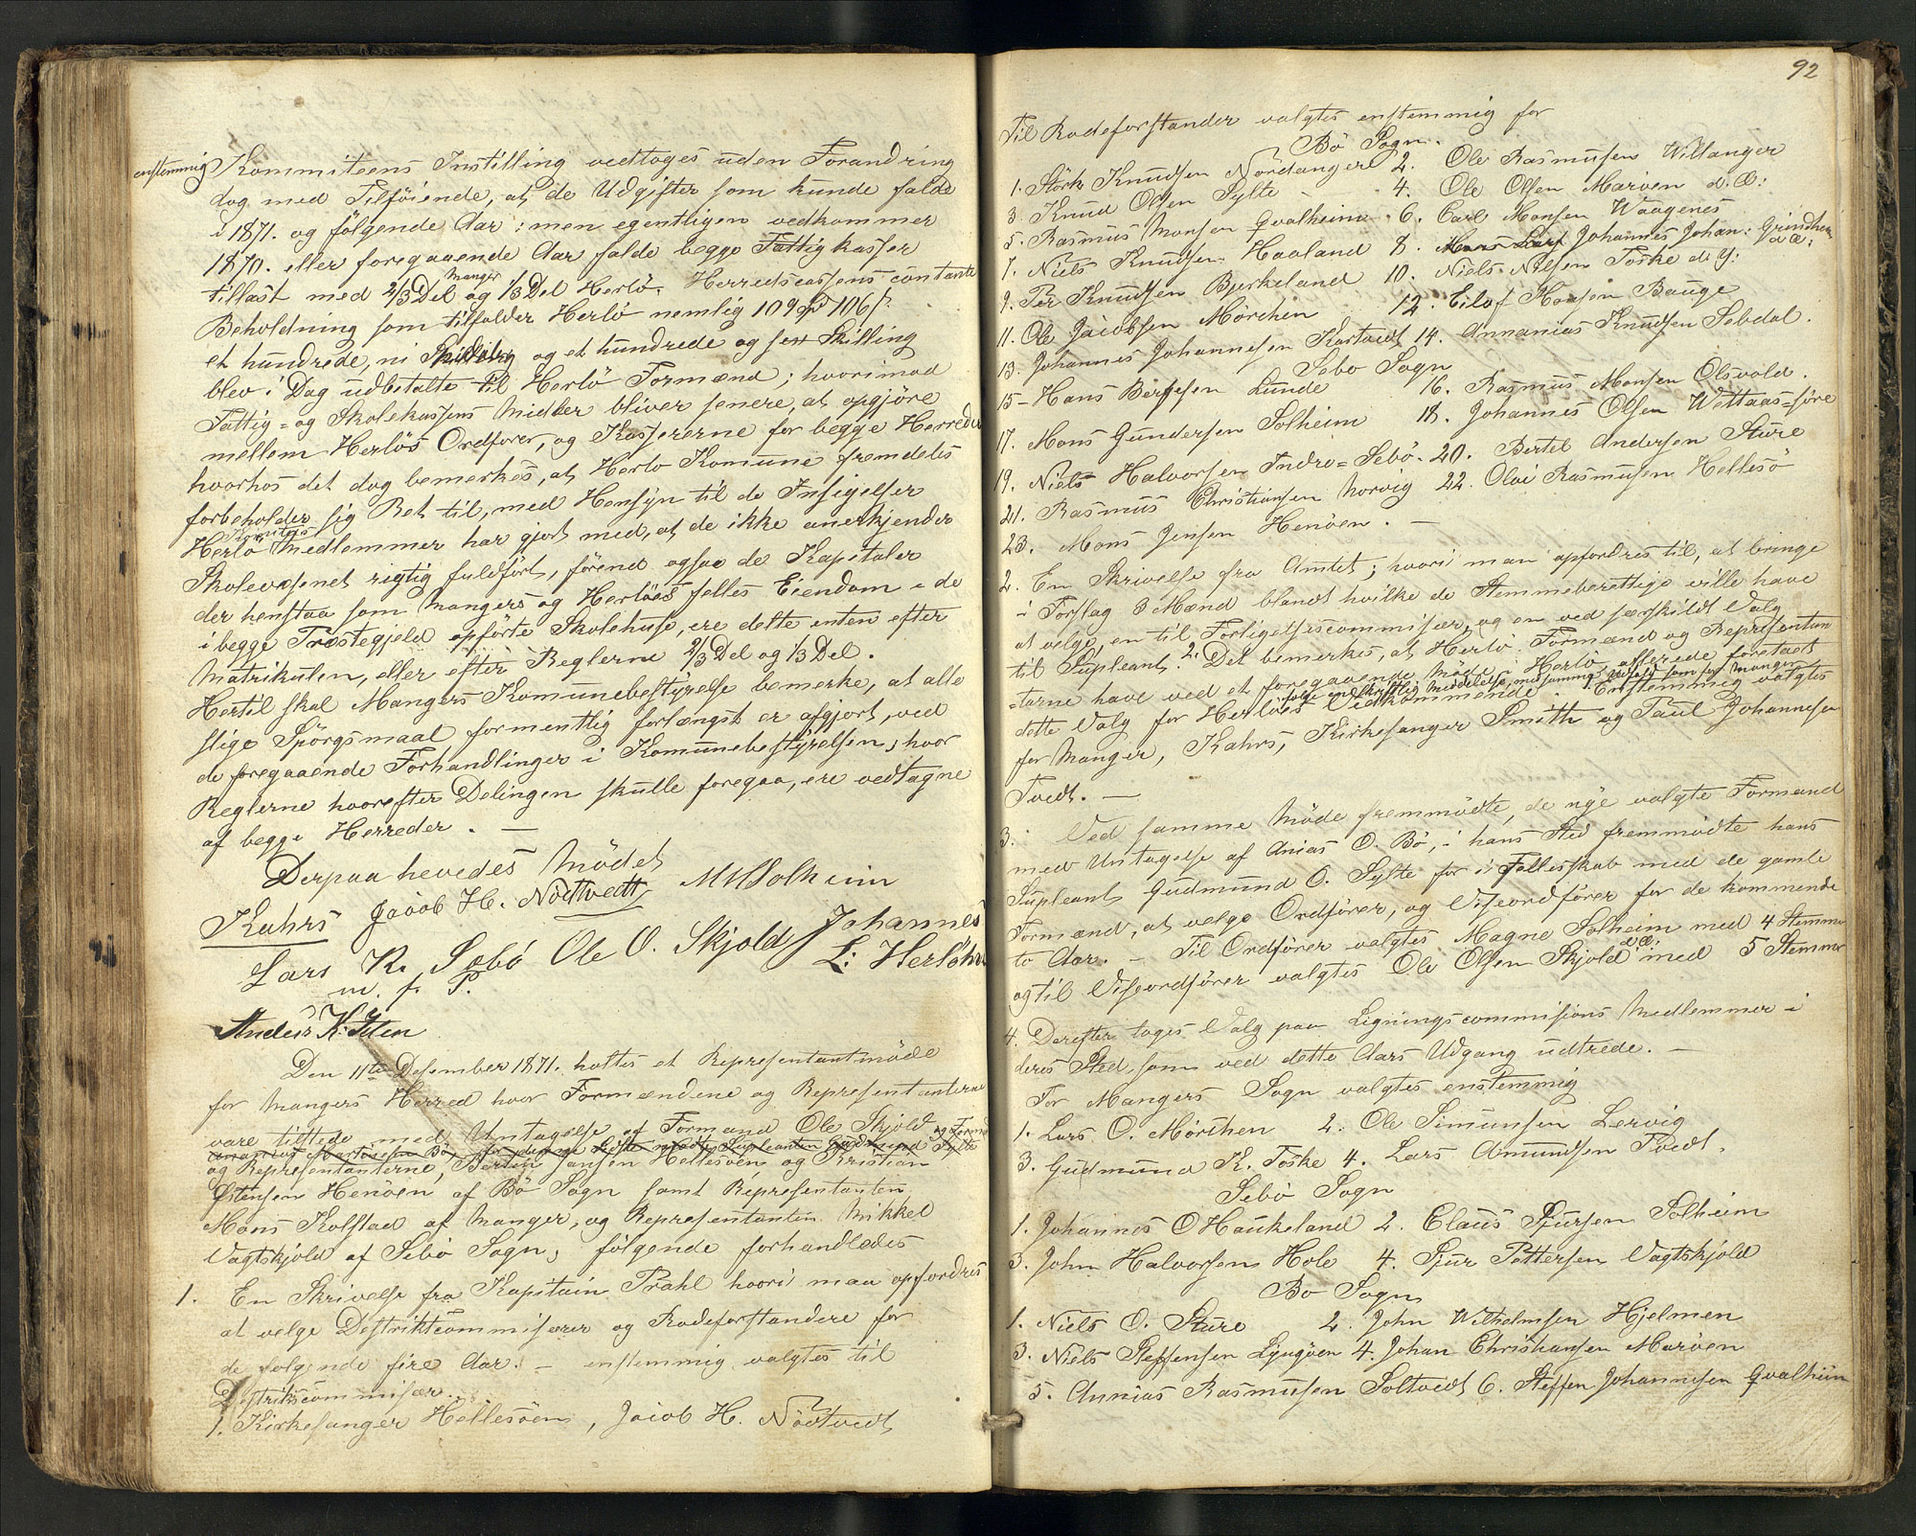 enstemmig Kommiteens Instilling vedtoges uden Forandring
dog med Tilføiende, at de Udgifter som kunde falde
i 1871. og følgende Aar; men egentligen vedkommer
1870. eller foregaaende Aar falde begge Fattigkasser
tillast med 2/3 Del Manger og 1/3 Del Herlö. Herredscassens contante
Beholdning som tilfalder Herlö nemlig 109 Spd 106 s.
et hundrede, ni og et hundrede og sex Skilling
blev i Dag udbetalte til Herlö Formænd; hvorimod
Fattig- og Skolekassens Midler bliver senere, at opgjöre
mellem Herlös Ordfører, og Kassererne for begge Herreder
hvorhos det dog bemerkes, at Herlö Komune fremdeles
forbeholder sig Ret til, med Hensyn til de Insigelser
Herlö Komites Medlemmer har gjort med, at de ikke anerkjender
Skolevæsenet rigtig fuldført, førend ogsaa de Kapitaler
der henstaa som Mangers og Herlöes felles Eiendom i de
i begge Præstegjeld opførte Skolehuse, ere delte enten efter
Matrikulen, eller efter Reglerne 2/3 Del og 1/3 Del.
Hertil skal Mangers Komunebestyrelse bemerke, at alle
slige Spörgsmaal formentlig forlængst er afgjort, ved
de foregaaende Forhandlinger i Komunebestyrelsen, hvor
Reglerne hvorefter Delingen skulle foregaa, ere vedtagne
af begge Herreder. —
Derpaa hevedes Mödet
Kahrs Jacob H. Nödtvedt M M Solheim
Lars R. Sebö Ole O. Skjold Johannes
m. f. P. L: Herlöhn
Anders K. Iden
Den 11te Desember 1871. holtes et Representantmöde
for Mangers Herred hvor Formændene og Representanterne
vare tilstede med Undtagelse af Formand Ole Skjold
og Representanterne, Bertin Jansen Hellesöen og Kristian
Østensen Henöen, af Bö Sogn samt Representanten
Mons Kolstad af Manger, og Representanten Mikkel
Vagtskjold af Sebö Sogn, følgende forhandledes
1. En Skrivelse fra Kapitain Prahl hvori man opfordres
at velge Destriktcommisærer og Rodeforstandere for
de følgende fire Aar. — enstemmig valgtes til
Destrikscommisær.
1. Kirkesanger Hellesöen, Jacob H. Nödtvedt
92
Til Rodeforstander valgtes enstemmig for
Bö Sogn.
1. Störk Knudsen Nordanger 2. Ole Rasmusen Willanger
3. Knud Olsen Sylte - 4. Ole Olsen Maröen d: Æ:
5. Rasmus Monsen Qvalheim - 6. Carl Monsen Waagenes
7. Niels Knudsen Haaland 8. Johannes Johan: Grindheim d Æ:
9. Per Knudsen Bjerkeland 10. Niels Nilsen Toske d: Y:
11. Ole Jacobsen Mörchen 12. Eilof Hansen Bauge
13. Johannes Johannesen Kartvedt 14. Annanias Knudsen Sebdal.
Sebo Sogn
15 - Hans Börgesen Lunde 16. Rasmus Monsen Olsvold.
17. Mons Gundersen Solheim 18. Johannes Olsen Wettaas-jöre
19. Niels Halvorsen Indre-Sebö. 20. Bertel Andersen Sture
21. Rasmus Christiansen Norvig 22. Olai Rasmusen Hellesö
23. Mons Jensen Henöen. —
2. En Skrivelse fra Amtet; hvori man opfordres til, at bringe
i Forslag 3 Mænd blandt hvilke de Stemmeberettige ville have
at velge, en til Forligelsescommisær, og en ved særskildt Valg
til Supleant. 2. Det bemerkes, at Herlö Formænd og Representan
=terne have ved et foregaaende Möde i Herlö allerede foretaet
dette Valg for Herlöes Vedkommende. Enstemmig valgtes
for Manger, Kahrs, Kirkesanger Smith og Paul Johannesen
Tvedt. —
3. Ved samme Möde fremmödte, de nye valgte Formænd
med Untagelse af Anias O. Bö, i hans Sted fremmödte hans
Supleant Gudmund O. Sylte for i Fellesskab med de gamle
Formænd, at velge Ordfører, og Viseordfører for de kommende
to Aar. — Til Ordfører valgtes Magne Solheim med 4 Stemmer
og til Viseordfører valgtes Ole Olsen Skjold d Æ: med 5 Stemmer
4. Derefter toges Valg paa Ligningscommisions Medlemmer i
deres Sted, som ved dette Aars Udgang udtrede. —
For Mangers Sogn valgtes enstemmig
1. Lars O. Mörchen 2. Ole Simunsen Lervig
3. Gudmund K. Toske 4. Lars Amundsen Tvedt.
Sebö Sogn
1. Johannes O Haukeland 2. Claus Sjursen Solheim
3. John Halvorsen Hole 4. Sjur Pettersen Vagtskjold
Bo Sogn
1. Niels O. Sture 2. John Wilhelmsen Hjelmen
3. Niels Steffensen Lyngöen 4. Johan Christiansen Maröen
5. Annias Rasmusen Soltvedt 6. Steffen Johannesen Qvalheim